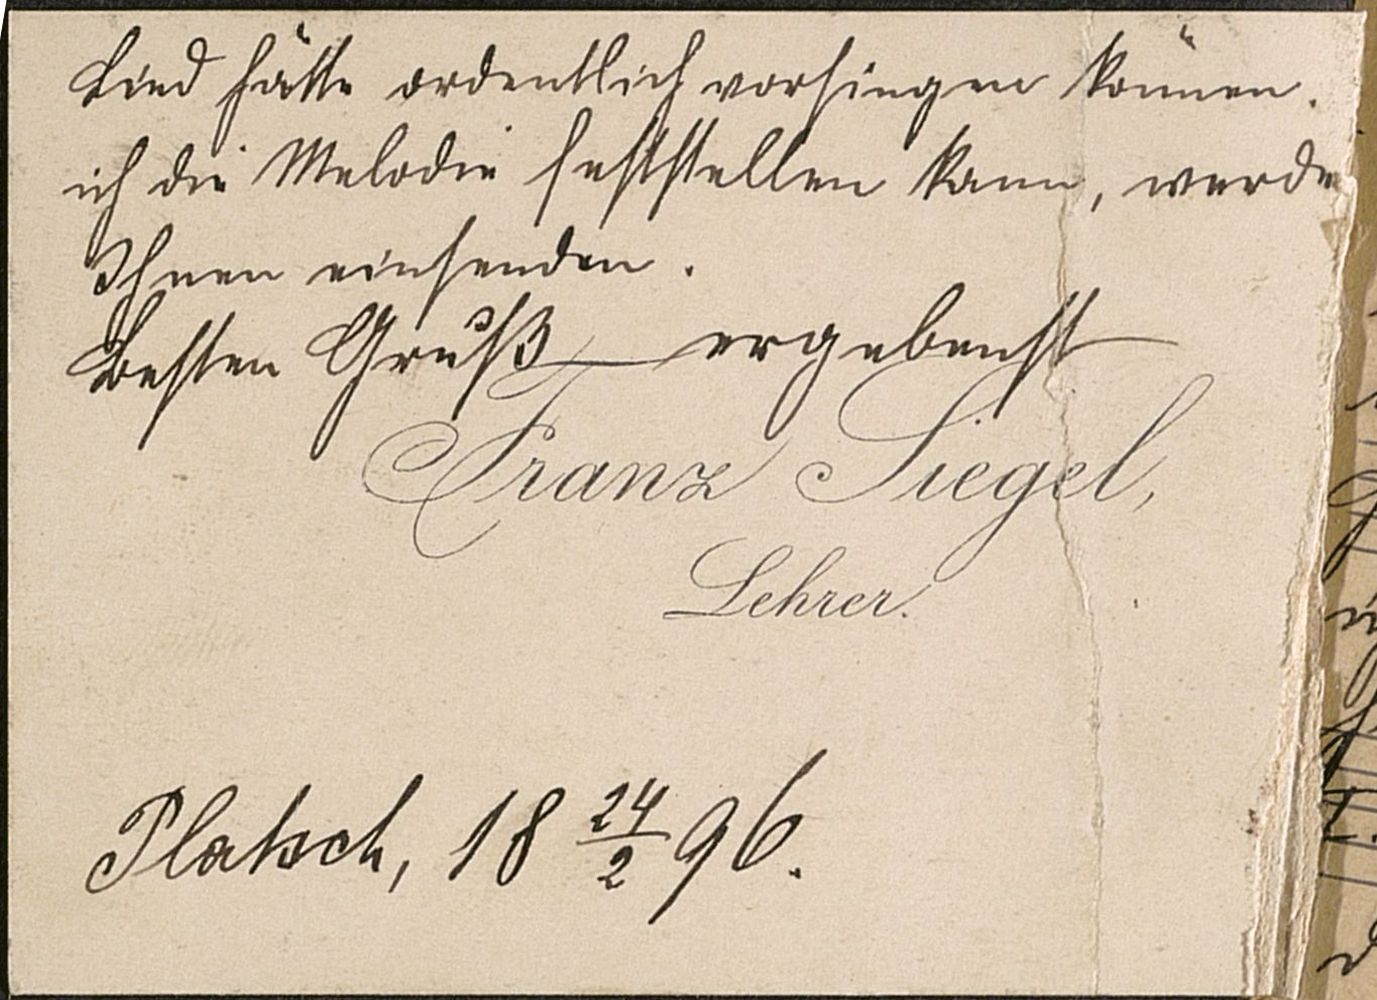 Lied hätte ordentlich vorsingen können.
ich die Melodie feststellen kann, werde
Ihnen einsenden.
Besten Gruß ergebenst
Franz Siegel,
Lehrer.
Platsch, 18 24/2 96.